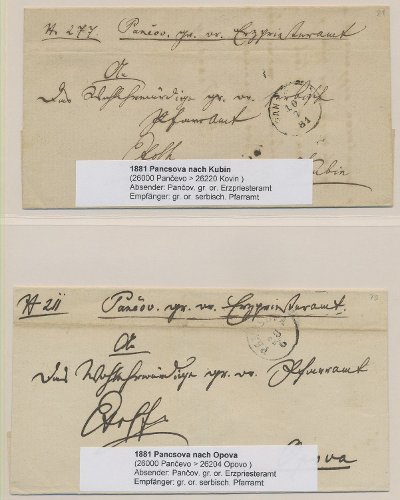 81
№ 277 Pančov. gr. or. Erzpriesteramt
An
Das Wohlehrwürdige gr. or. serbisch
Pfarramt
Kubin
1881 Pancsova nach Kubin
(26000 Pančevo > 26220 Kovin )
Absender: Pančov. gr. or. Erzpriesteramt
Empfänger: gr. or. serbisch. Pfarramt
№ 211 Pančov. gr. or. Erzpriesteramt.
An
Das Wohlehrwürdige gr. or. Pfarramt
Opova
1881 Pancsova nach Opova
(26000 Pančevo > 26204 Opovo )
Absender: Pančov. gr. or. Erzpriesteramt
Empfänger: gr. or. serbisch. Pfarramt